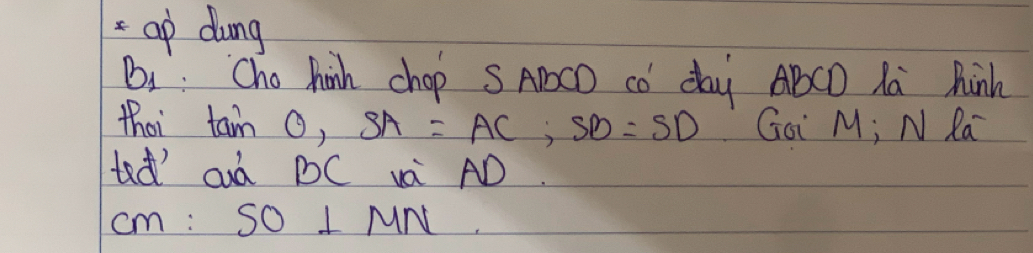 * áp dụng
B1: Cho hình chóp SABCD có đáy ABCD là hình
thoi tâm O, SA = AC; SB = SD. Gọi M; N là
tđ' của BC và AD.
cm: SO ⊥ MN.